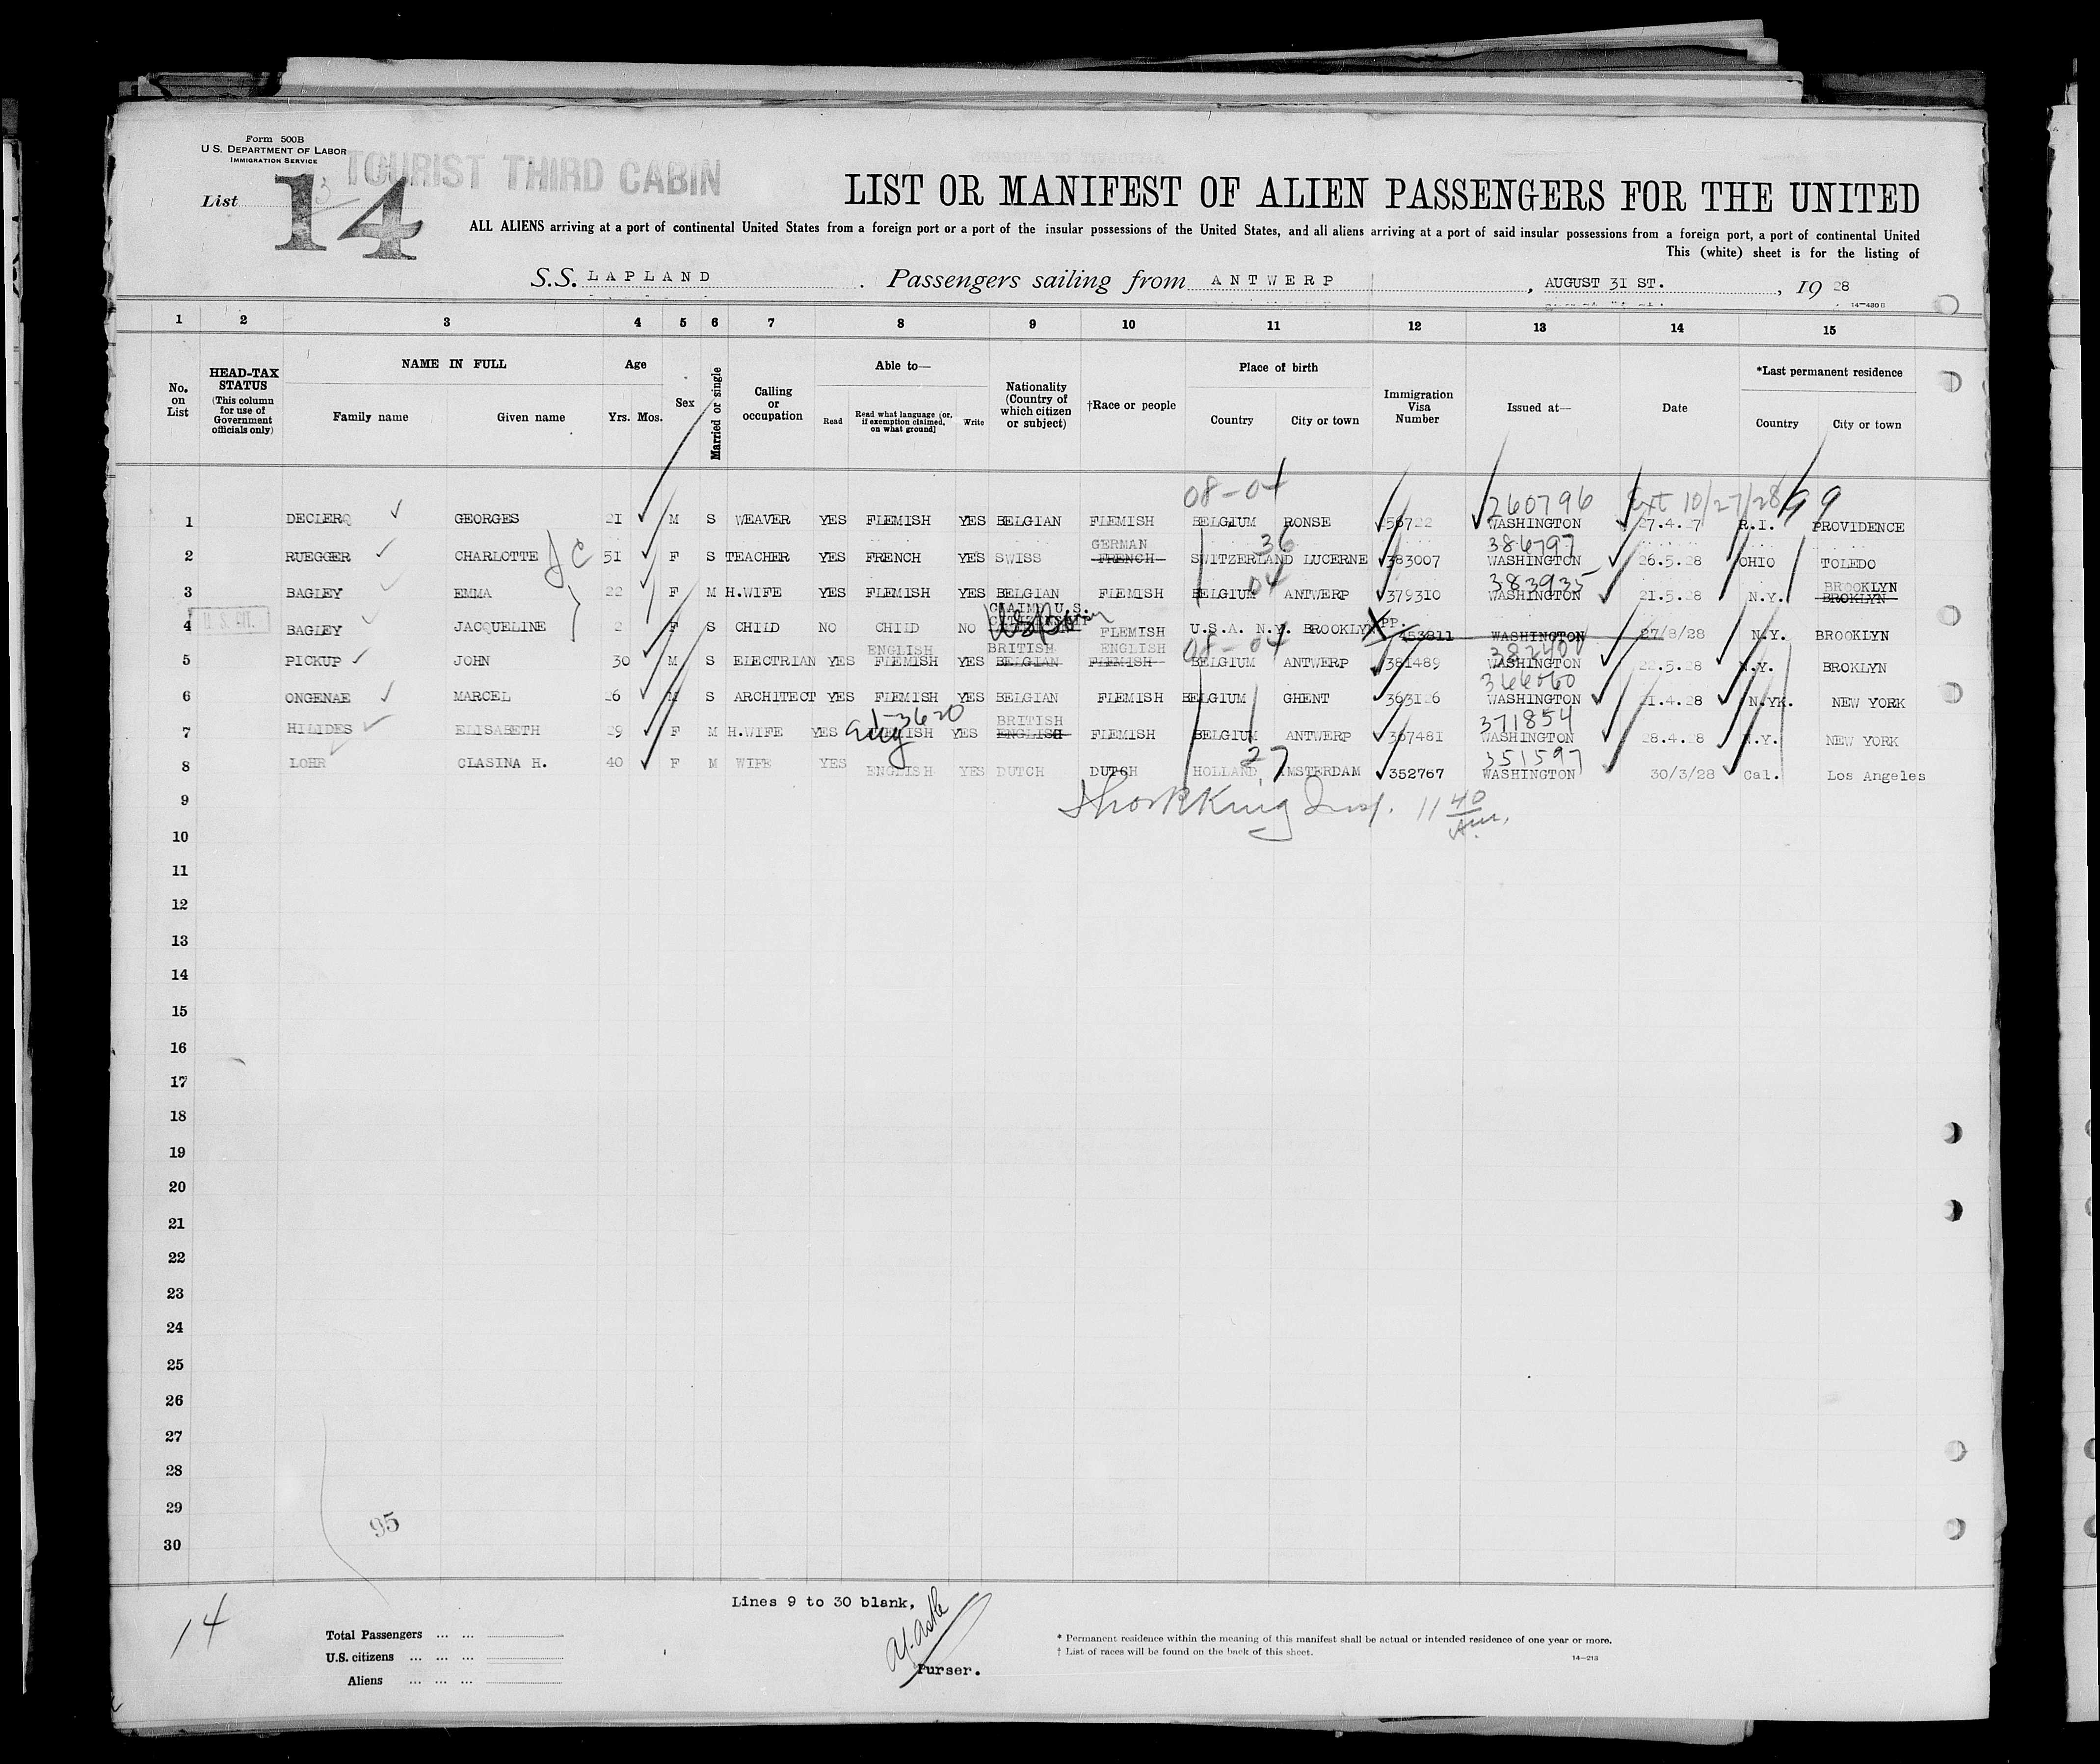 Form 500B
U S. DEPARTMENT OF LABOR
IMMIGRATION SERVICE
TOURIST THIRD CABIN
List 14
3
LIST OR MANIFEST OF ALIEN PASSENGERS FOR THE UNITED
ALL ALIENS arriving at a port of continental United States from a foreign port or a port of the insular possessions of the United States, and all aliens arriving at a port of said insular possessions from a foreign port, a port of continental United
This (white) sheet is for the listing of
S.S. LAPLAND. Passengers sailing from ANTWERP, AUGUST 31 ST., 19 28
1 2 3 4 5 6 7 8 9 10 11 12 13 14 15
No. on List
HEAD-TAX STATUS (This column for use of Government officials only)
NAME IN FULL
Family name Given name
Age
Yrs. Mos.
Sex
Married or single
Calling or occupation
Able to—
Read Read what language [or, if exemption claimed, on what ground] Write
Nationality (Country of which citizen or subject)
†Race or people
Place of birth
Country City or town
Immigration Visa Number
Issued at—
Date
*Last permanent residence
Country City or town
08-04 260796 Ext 10/27/28 99
1 DECLERQ GEORGES 21 M S WEAVER YES FLEMISH YES BELGIAN FLEMISH BELGIUM RONSE WASHINGTON 27.4.27 R.I. PROVIDENCE
GERMAN 36 386797
2 RUEGGER CHARLOTTE 51 F S TEACHER YES FRENCH YES SWISS FRENCH SWITZERLAND LUCERNE 383007 WASHINGTON 26.5.28 OHIO TOLEDO
04 383935 BROOKLYN
3 BAGLEY EMMA 22 F M H.WIFE YES FLEMISH YES BELGIAN FLEMISH BELGIUM ANTWERP 379310 WASHINGTON 21.5.28 N.Y. BROKLYN
U. S. CIT. CLAIM U.S. CITIZENSHIP
4 BAGLEY JACQUELINE 2 F S CHILD NO CHILD NO FLEMISH U.S.A. N.Y. BROOKLYN PP. 453811 WASHINGTON 27/8/28 N.Y. BROOKLYN
ENGLISH BRITISH ENGLISH 08-04 382400
5 PICKUP JOHN 30 M S ELECTRIAN YES FLEMISH YES BELGIAN FLEMISH BELGIUM ANTWERP 381489 WASHINGTON 22.5.28 N.Y. BROKLYN
366060
6 ONGENAE MARCEL 26 M S ARCHITECT YES FLEMISH YES BELGIAN FLEMISH BELGIUM GHENT 363126 WASHINGTON 21.4.28 N.YK. NEW YORK
1-3620 BRITISH 371854
7 HILIDES ELISABETH 29 F M H.WIFE YES Eng YES ENGLISH FLEMISH BELGIUM ANTWERP 367481 WASHINGTON 28.4.28 N.Y. NEW YORK
27 351597
8 LOHR CLASINA H. 40 F M WIFE YES ENGLISH YES DUTCH DUTCH HOLLAND AMSTERDAM 352767 WASHINGTON 30/3/28 Cal. Los Angeles
9 King Insp. 11 40 Am.
10
11
12
13
14
15
16
17
18
19
20
21
22
23
24
25
26
27
28
29
95
30
Lines 9 to 30 blank,
14
Total Passengers
U.S. citizens
Aliens
Purser.
* Permanent residence within the meaning of this manifest shall be actual or intended residence of one year or more.
† List of races will be found on the back of this sheet.
14—213